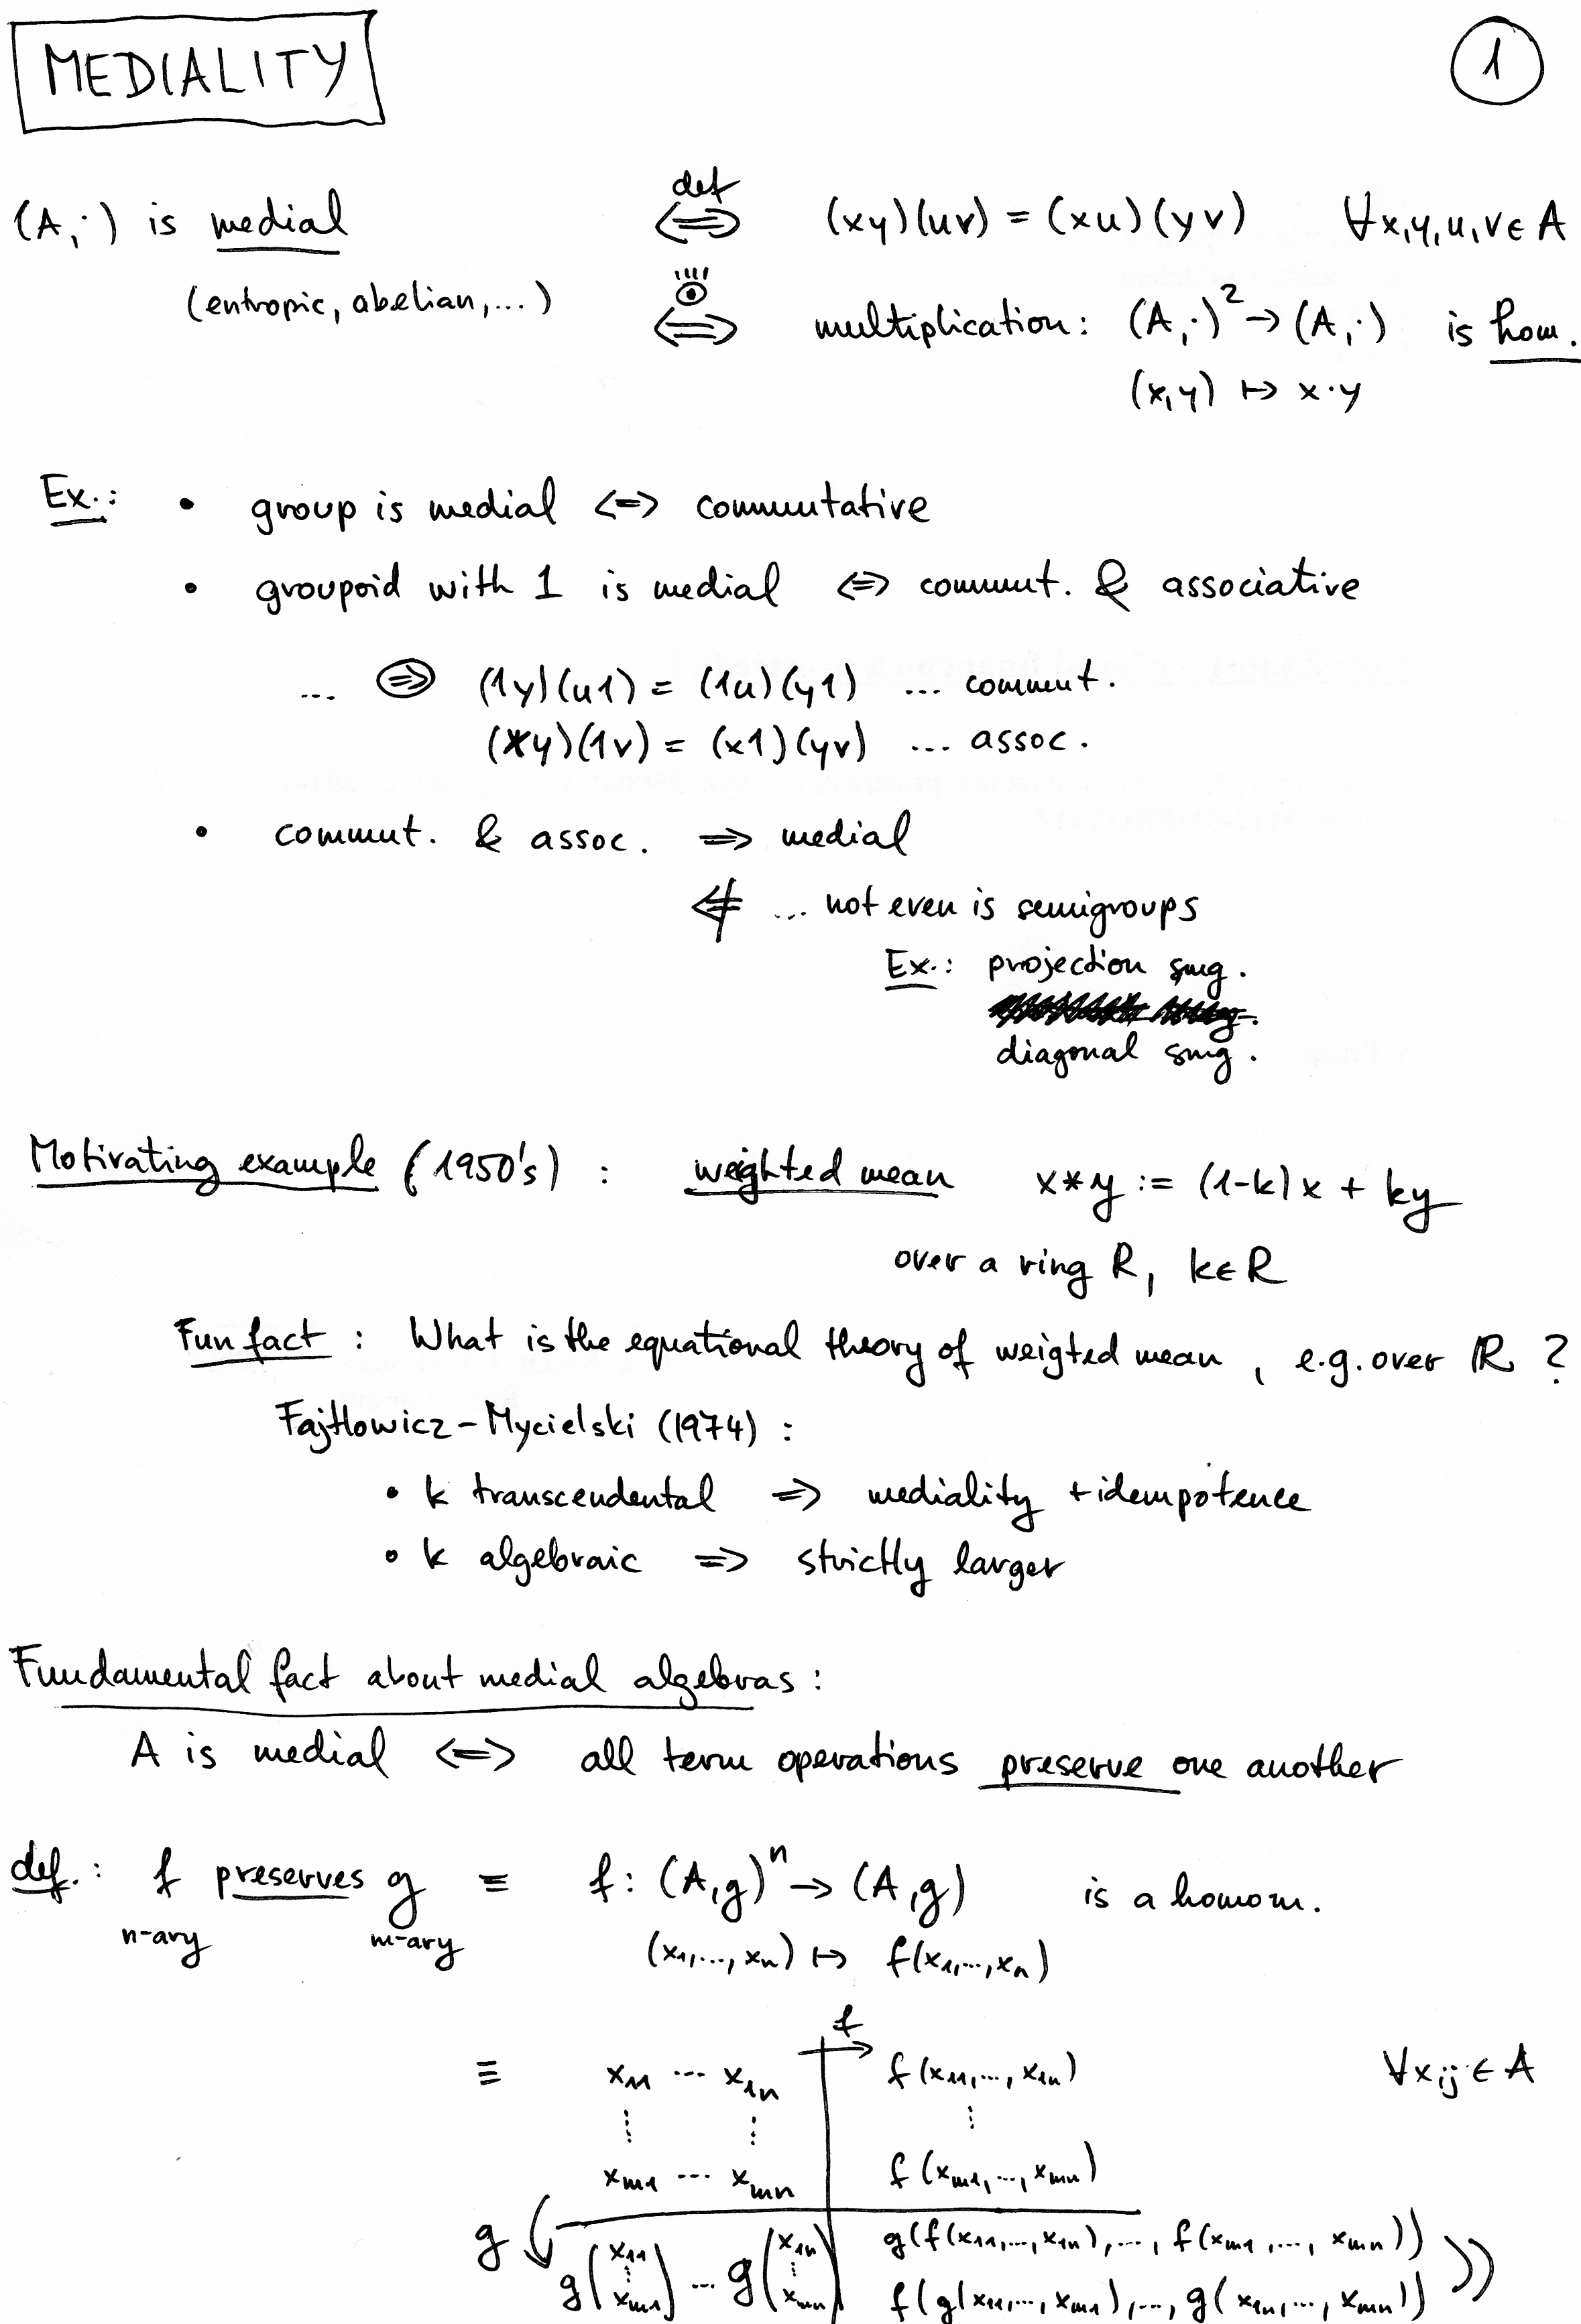 MEDIALITY
1
(A,·) is medial ⟺ def (xy)(uv) = (xu)(yv) ∀x,y,u,v ∈ A
(entropic, abelian, ...) ⟺ multiplication: (A,·)² → (A,·) is hom.
(x,y) ↦ x·y
Ex.: • group is medial ⟺ commutative
• groupoid with 1 is medial ⟺ commut. & associative
... ⟹ (1y)(u1) = (1u)(y1) ... commut.
(xy)(1v) = (x1)(yv) ... assoc.
• commut. & assoc. ⟹ medial
⟸̸ ... not even is semigroups
Ex.: projection smg.
diagonal smg.
Motivating example (1950's) : weighted mean x*y := (1-k)x + ky
over a ring R, k∈R
Fun fact : What is the equational theory of weigted mean, e.g. over ℝ ?
Fajtlowicz – Mycielski (1974) :
• k transcendental ⟹ mediality + idempotence
• k algebraic ⟹ strictly larger
Fundamental fact about medial algebras :
A is medial ⟺ all term operations preserve one another
def.: f preserves g ≡ f : (A,g)ⁿ → (A,g) is a homom.
n-ary m-ary (x₁,...,xₙ) ↦ f(x₁,...,xₙ)
f
≡ x₁₁ ... x₁ₙ f(x₁₁,...,x₁ₙ) ∀xᵢⱼ ∈ A
⋮ ⋮ ⋮
xₘ₁ ... xₘₙ f(xₘ₁,...,xₘₙ)
g g(x₁₁ ⋮ xₘ₁) ... g(x₁ₙ ⋮ xₘₙ) g(f(x₁₁,...,x₁ₙ),...,f(xₘ₁,...,xₘₙ)) ))
f(g(x₁₁,...,xₘ₁),...,g(x₁ₙ,...,xₘₙ))